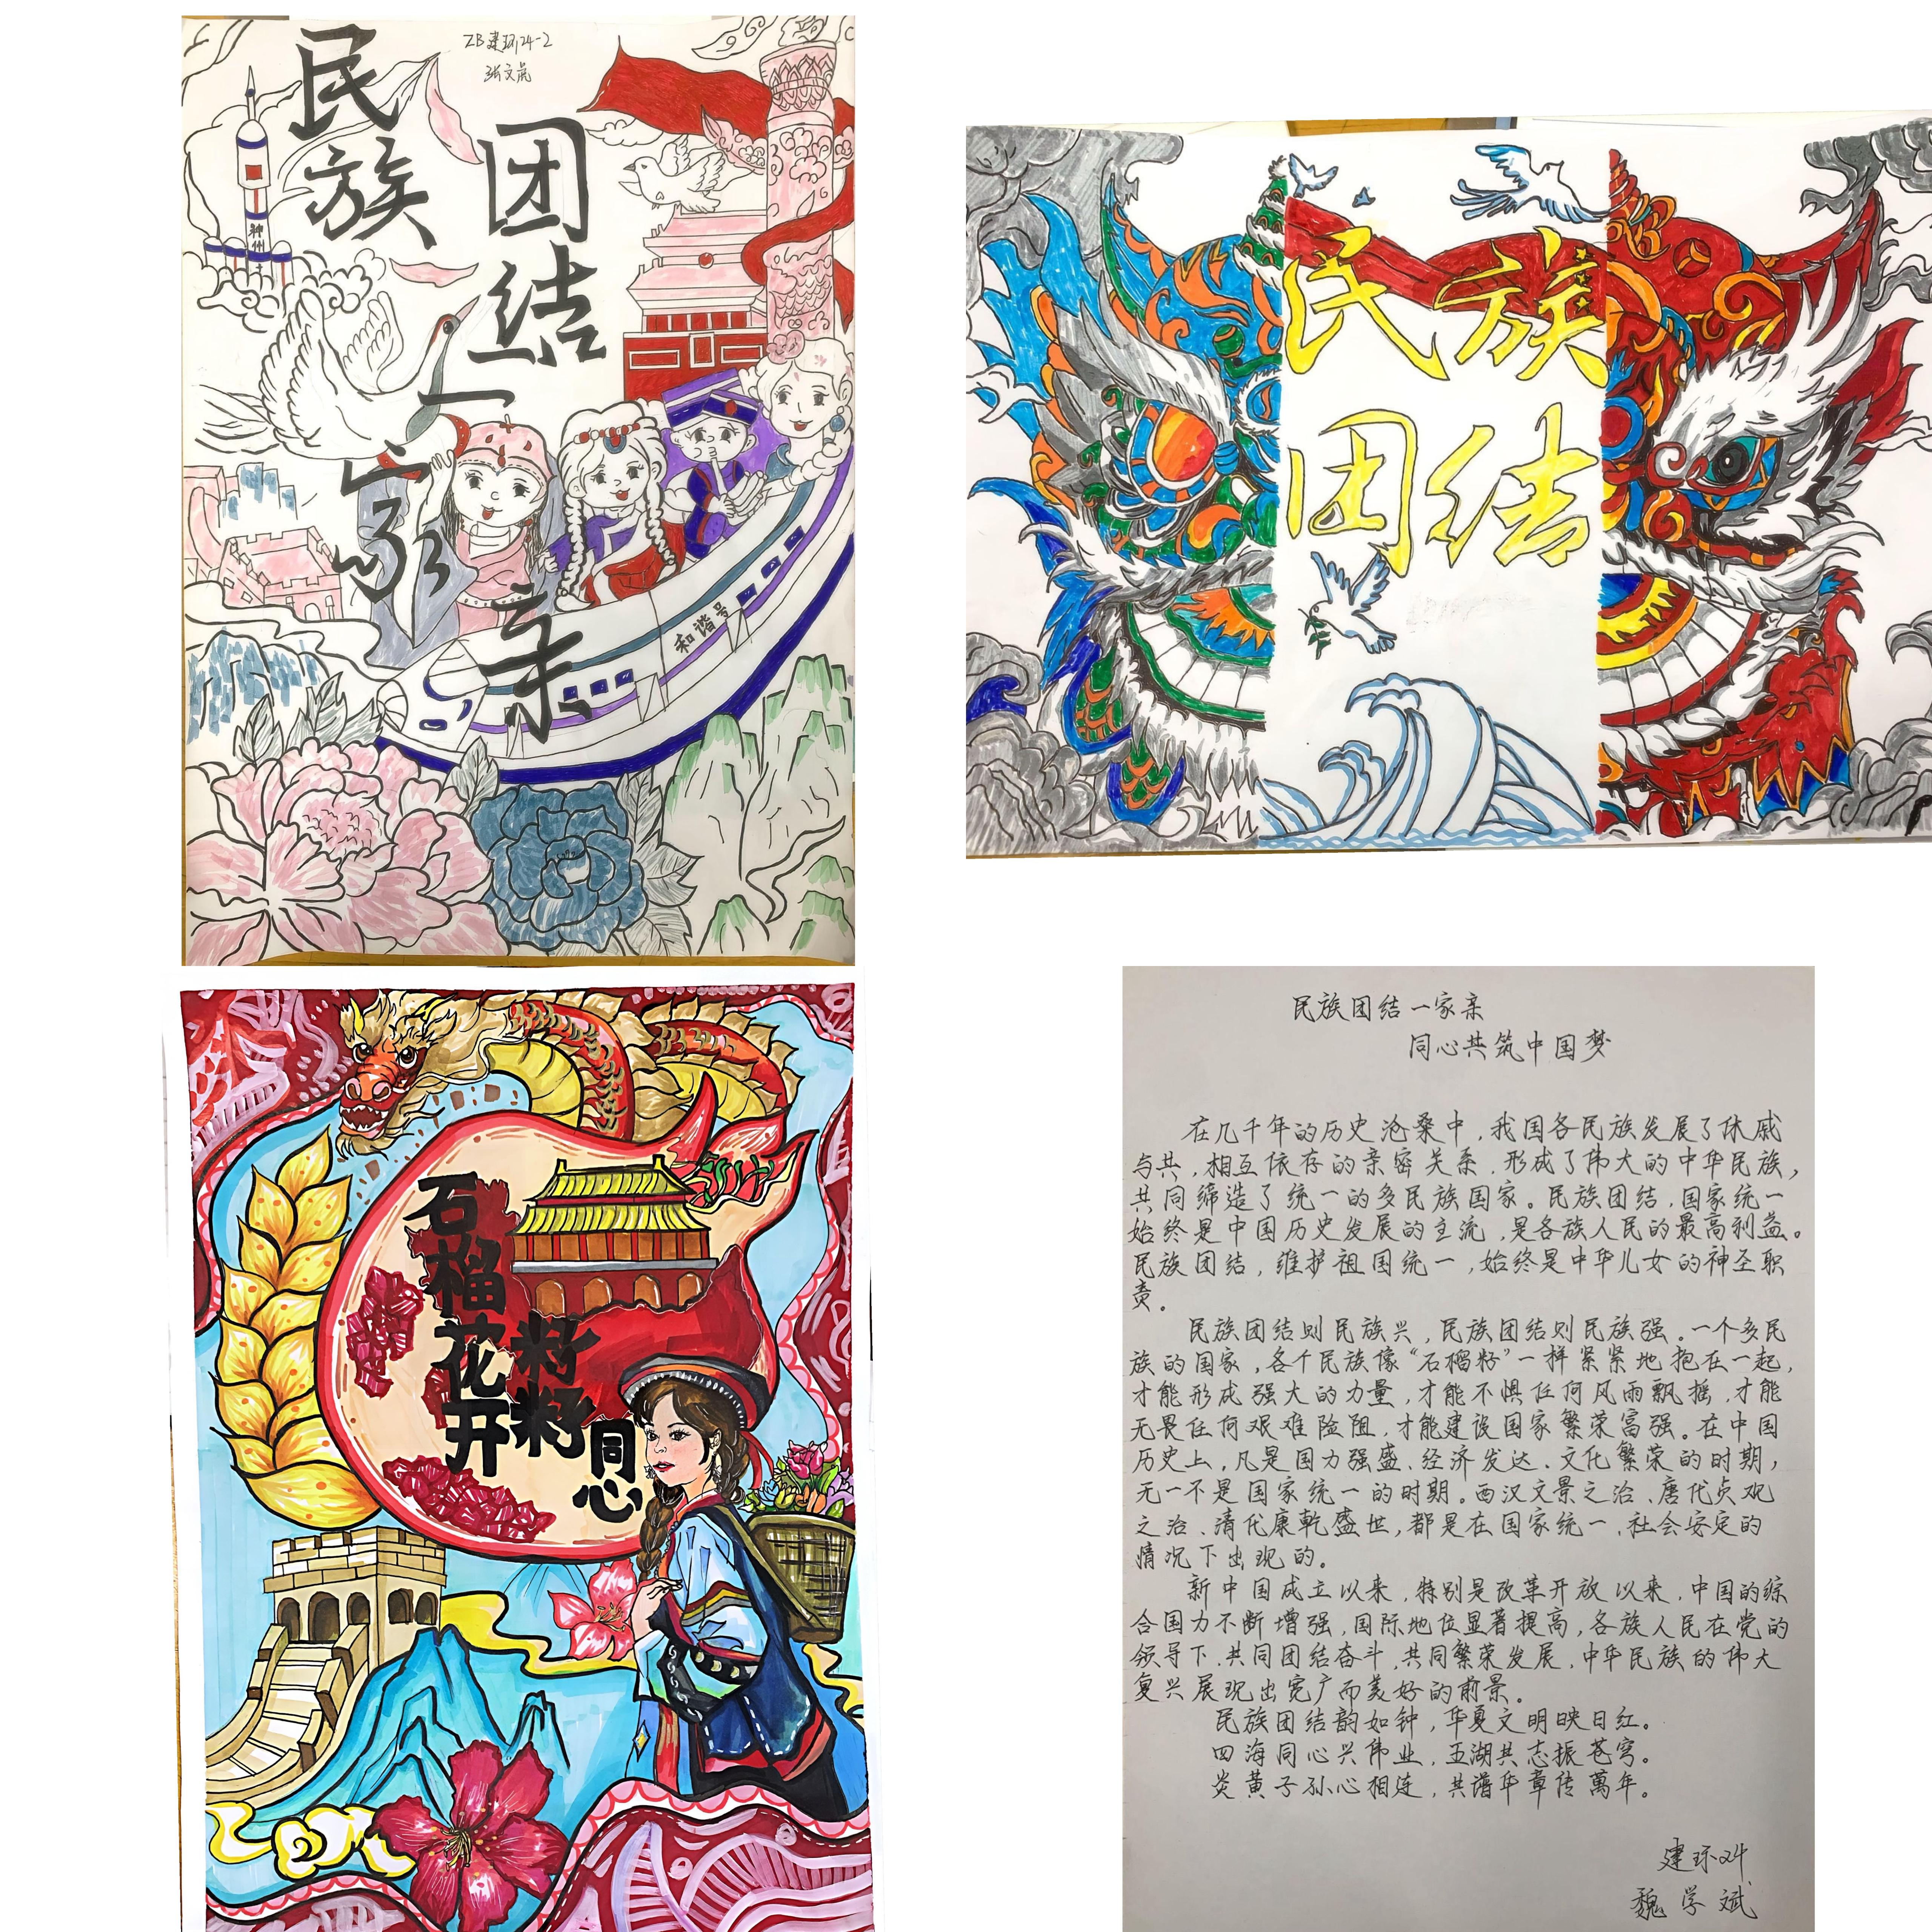 ZB建环24-2
民族
团结
一家亲
神州
和谐号
民族
团结
石榴花开
籽籽
同心
民族团结一家亲
同心共筑中国梦
在几千年的历史沧桑中，我国各民族发展了休戚
与共，相互依存的亲密关系，形成了伟大的中华民族，
共同缔造了统一的多民族国家。民族团结，国家统一
始终是中国历史发展的主流，是各族人民的最高利益。
民族团结，维护祖国统一，始终是中华儿女的神圣职
责。
民族团结则民族兴，民族团结则民族强。一个多民
族的国家，各个民族像“石榴籽”一样紧紧地抱在一起，
才能形成强大的力量，才能不惧任何风雨飘摇，才能
无畏任何艰难险阻，才能建设国家繁荣富强。在中国
历史上，凡是国力强盛、经济发达、文化繁荣的时期，
无一不是国家统一的时期。西汉文景之治、唐代贞观
之治、清代康乾盛世，都是在国家统一、社会安定的
情况下出现的。
新中国成立以来，特别是改革开放以来，中国的综
合国力不断增强，国际地位显著提高，各族人民在党的
领导下，共同团结奋斗，共同繁荣发展，中华民族的伟大
复兴展现出宽广而美好的前景。
民族团结韵如钟，华夏文明映日红。
四海同心兴伟业，五湖共志振苍穹。
炎黄子孙心相连，共谱华章传萬年。
建环24
魏学斌